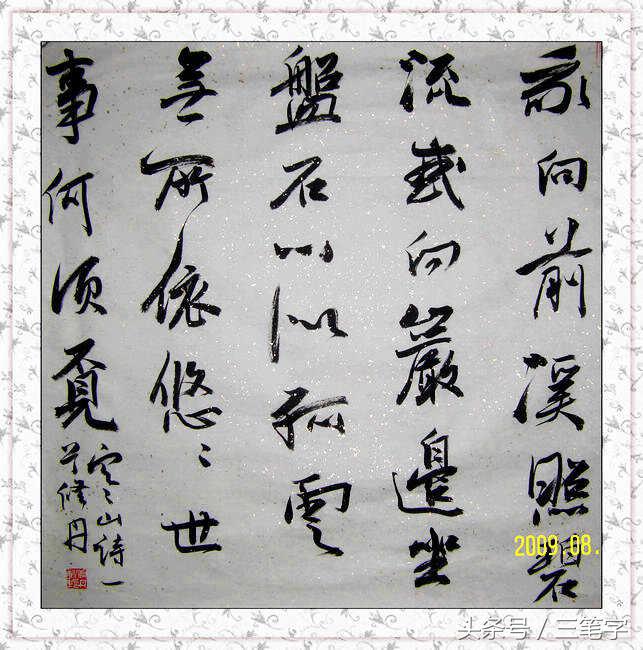 我向前溪照碧
流或向巖邊坐
盤石心似孤雲
無所依悠〻世
事何須覓
寒山詩一
首修丹
2009.08.
头条号 / 三笔字